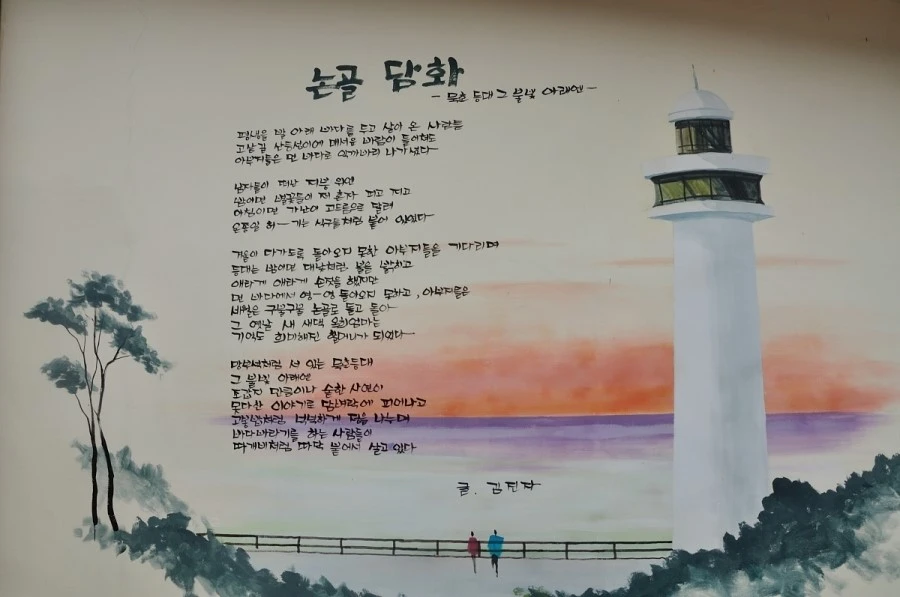 논골 담화
- 묵호 등대 그 불빛 아래엔 -
발 아래 바다를 두고 살아 온 사람들
고샅길 산등성이에 매서운 바람이 들이쳐도
아부지들은 먼 바다로 나가셨다
남자들이 떠난 지붕 위엔
밤이면 별꽃들이 저 혼자 피고 지고
아침이면 가난이 고드름으로 달려
허一 기는 식구들처럼 붙어 있었다
겨울이 다가도록 돌아오지 못한 아부지들을 기다리며
등대는 밤이면 대낮처럼 불을 밝히고
애타게 애타게 손짓을 했지만
먼 바다에서 영一영 돌아오지 못하고, 아부지들은
세월은 구불구불 논골로 돌고 돌아
그 옛날 새 새댁
기억도 희미해진 할머니가 되었다
서 있는 묵호등대
그 불빛 아래엔
조갑지 만큼이나 숱한 사연이
못다한 이야기로 담벼락에 피어나고
넉넉하게 덤을 나누며
바다바라기를 하는 사람들이
따개비처럼 따닥 붙어서 살고 있다
글. 김진자